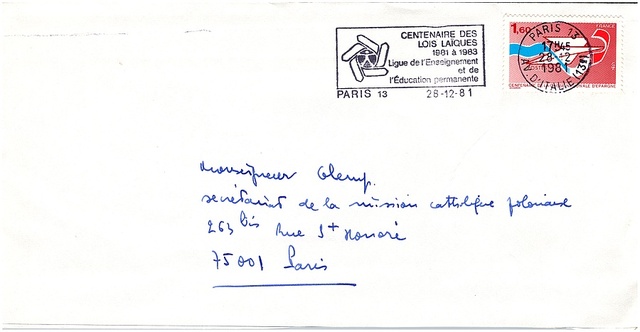 CENTENAIRE DES
LOIS LAÏQUES
1881 à 1983
Ligue de l'Enseignement
et de
l'Éducation permanente
PARIS 13 28-12-81
1,60 FRANCE
PARIS 13
17H45
28-12
198
AV. D'ITALIE (13e)
Monseigneur
secrétariat de la mission catholique polonaise
263 bis Rue St Honoré
75001 Paris